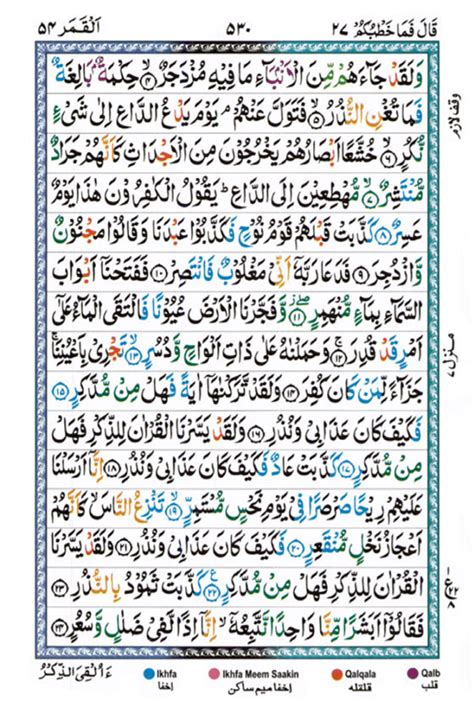 قَالَ فَمَا خَطْبُكُمْ ٢٧ ٥٣٠ اَلْقَمَر ٥٤
وَلَقَدْ جَآءَهُمْ مِّنَ الْاَنْۢبَآءِ مَا فِيْهِ مُزْدَجَرٌ ۙ﴿٤﴾ حِكْمَةٌۢ بَالِغَةٌ
فَمَا تُغْنِ النُّذُرُ ۙ﴿٥﴾ فَتَوَلَّ عَنْهُمْ ۘ يَوْمَ يَدْعُ الدَّاعِ اِلٰى شَيْءٍ
نُّكُرٍ ۙ﴿٦﴾ خُشَّعًا اَبْصَارُهُمْ يَخْرُجُوْنَ مِنَ الْاَجْدَاثِ كَاَنَّهُمْ جَرَادٌ
مُّنْتَشِرٌ ۙ﴿٧﴾ مُّهْطِعِيْنَ اِلَى الدَّاعِ ؕ يَقُوْلُ الْكٰفِرُوْنَ هٰذَا يَوْمٌ
عَسِرٌ ﴿٨﴾ كَذَّبَتْ قَبْلَهُمْ قَوْمُ نُوْحٍ فَكَذَّبُوْا عَبْدَنَا وَقَالُوْا مَجْنُوْنٌ
وَّازْدُجِرَ ﴿٩﴾ فَدَعَا رَبَّهٗۤ اَنِّيْ مَغْلُوْبٌ فَانْتَصِرْ ﴿١٠﴾ فَفَتَحْنَاۤ اَبْوَابَ
السَّمَآءِ بِمَآءٍ مُّنْهَمِرٍ ۖ﴿١١﴾ وَّفَجَّرْنَا الْاَرْضَ عُيُوْنًا فَالْتَقَى الْمَآءُ عَلٰۤى
اَمْرٍ قَدْ قُدِرَ ۚ﴿١٢﴾ وَحَمَلْنٰهُ عَلٰى ذَاتِ اَلْوَاحٍ وَّدُسُرٍ ۙ﴿١٣﴾ تَجْرِيْ بِاَعْيُنِنَا ۚ
جَزَآءً لِّمَنْ كَانَ كُفِرَ ﴿١٤﴾ وَلَقَدْ تَّرَكْنٰهَاۤ اٰيَةً فَهَلْ مِنْ مُّدَّكِرٍ ﴿١٥﴾
فَكَيْفَ كَانَ عَذَابِيْ وَنُذُرِ ﴿١٦﴾ وَلَقَدْ يَسَّرْنَا الْقُرْاٰنَ لِلذِّكْرِ فَهَلْ
مِنْ مُّدَّكِرٍ ﴿١٧﴾ كَذَّبَتْ عَادٌ فَكَيْفَ كَانَ عَذَابِيْ وَنُذُرِ ﴿١٨﴾ اِنَّاۤ اَرْسَلْنَا
عَلَيْهِمْ رِيْحًا صَرْصَرًا فِيْ يَوْمِ نَحْسٍ مُّسْتَمِرٍّ ۙ﴿١٩﴾ تَنْزِعُ النَّاسَ ۙ كَاَنَّهُمْ
اَعْجَازُ نَخْلٍ مُّنْقَعِرٍ ﴿٢٠﴾ فَكَيْفَ كَانَ عَذَابِيْ وَنُذُرِ ﴿٢١﴾ وَلَقَدْ يَسَّرْنَا
الْقُرْاٰنَ لِلذِّكْرِ فَهَلْ مِنْ مُّدَّكِرٍ ﴿٢٢﴾ كَذَّبَتْ ثَمُوْدُ بِالنُّذُرِ ﴿٢٣﴾
فَقَالُوْۤا اَبَشَرًا مِّنَّا وَاحِدًا نَّتَّبِعُهٗۤ ۙ اِنَّاۤ اِذًا لَّفِيْ ضَلٰلٍ وَّسُعُرٍ ﴿٢٤﴾
وقف لازم
منزل ٧
ع
ءَاُلْقِيَ الذِّكْرُ
Ikhfa اخفا
Ikhfa Meem Saakin اخفا میم ساکن
Qalqala قلقله
Qalb قلب